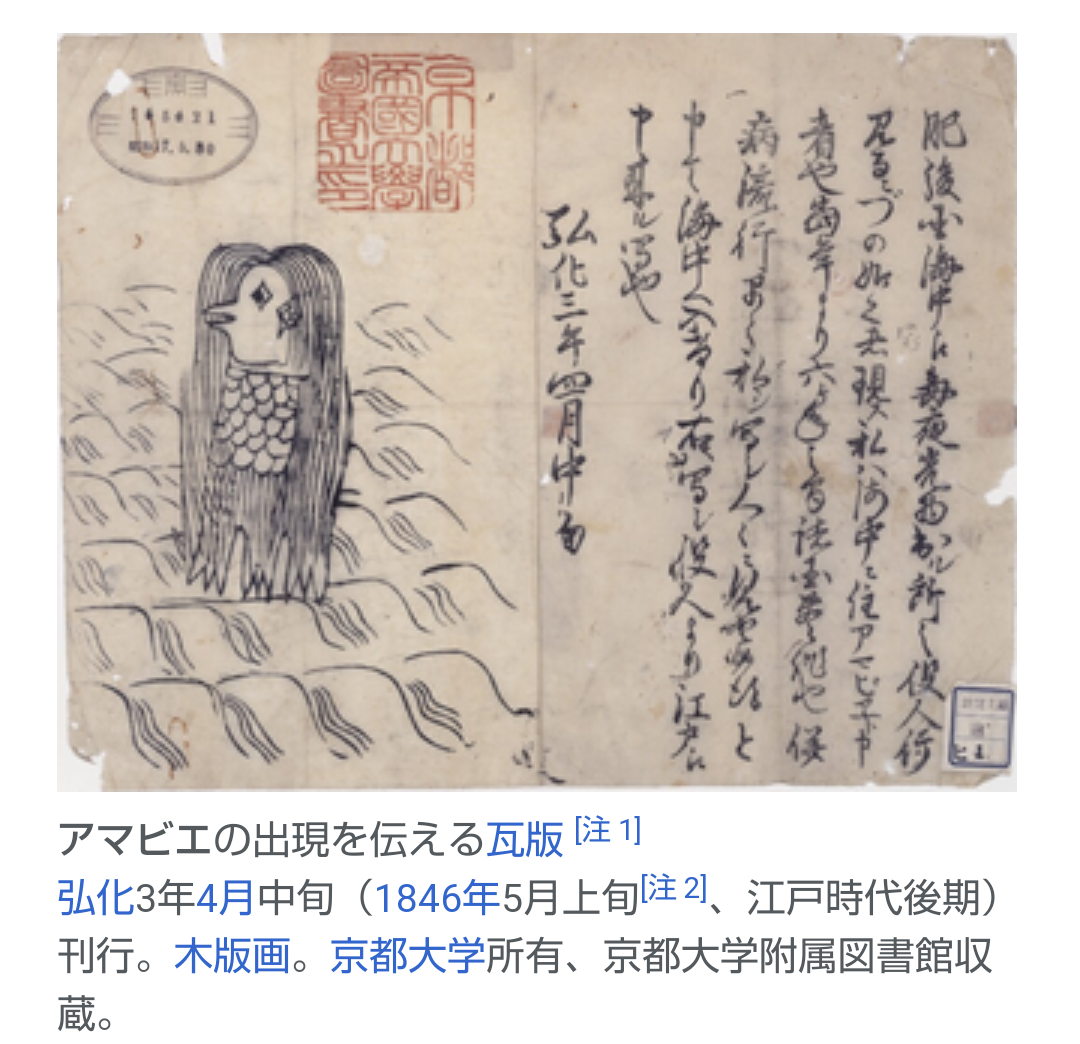 京都
帝國大學
圖書之印
肥後国海中え毎夜光物出ル所之役人行
見るニづの如く者現ス私ハ海中ニ住アマビヱト申
者也当年より六ヶ年之間諸国豊作也併
病流行早々私シ写シ人々ニ見せ候得と
申て海中へ入けり右写シ役人より江戸え
申来ル写也
弘化三年四月中旬
アマビエの出現を伝える瓦版 [注 1]
弘化3年4月中旬（1846年5月上旬[注 2]、江戸時代後期）
刊行。木版画。京都大学所有、京都大学附属図書館収
蔵。